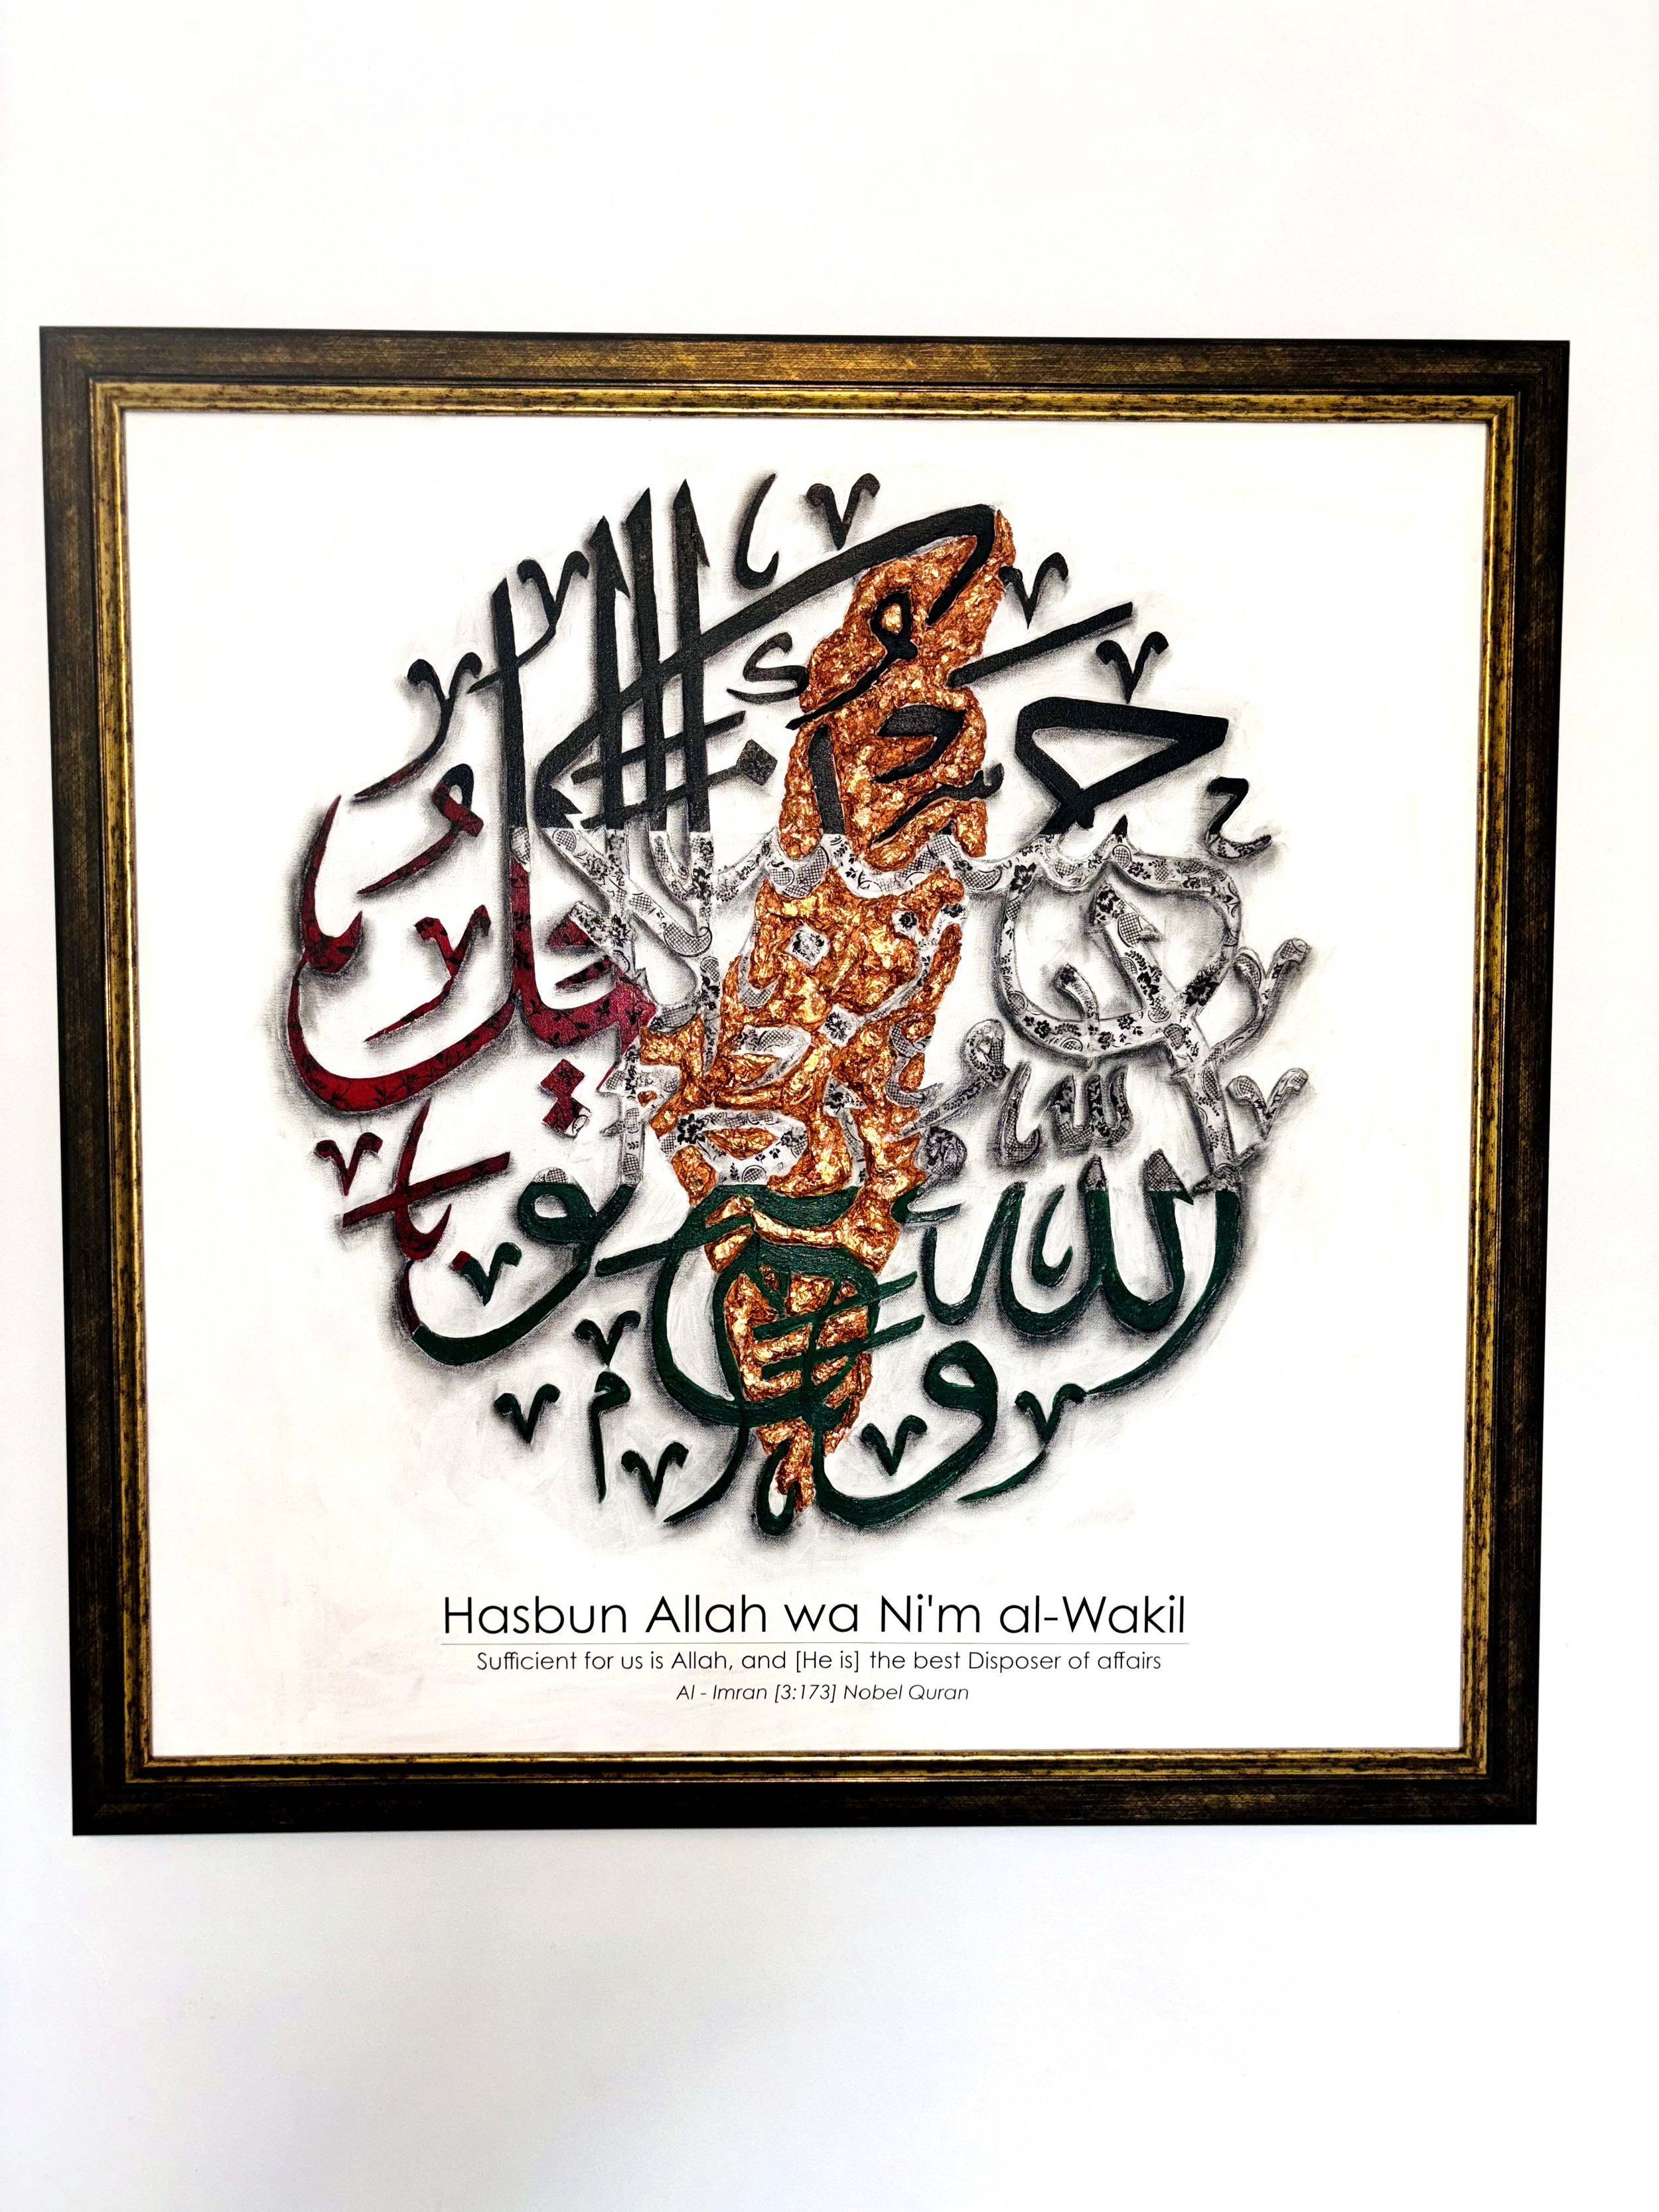 حسبنا الله ونعم الوكيل
Hasbun Allah wa Ni'm al-Wakil
Sufficient for us is Allah, and [He is] the best Disposer of affairs
Al - Imran [3:173] Nobel Quran